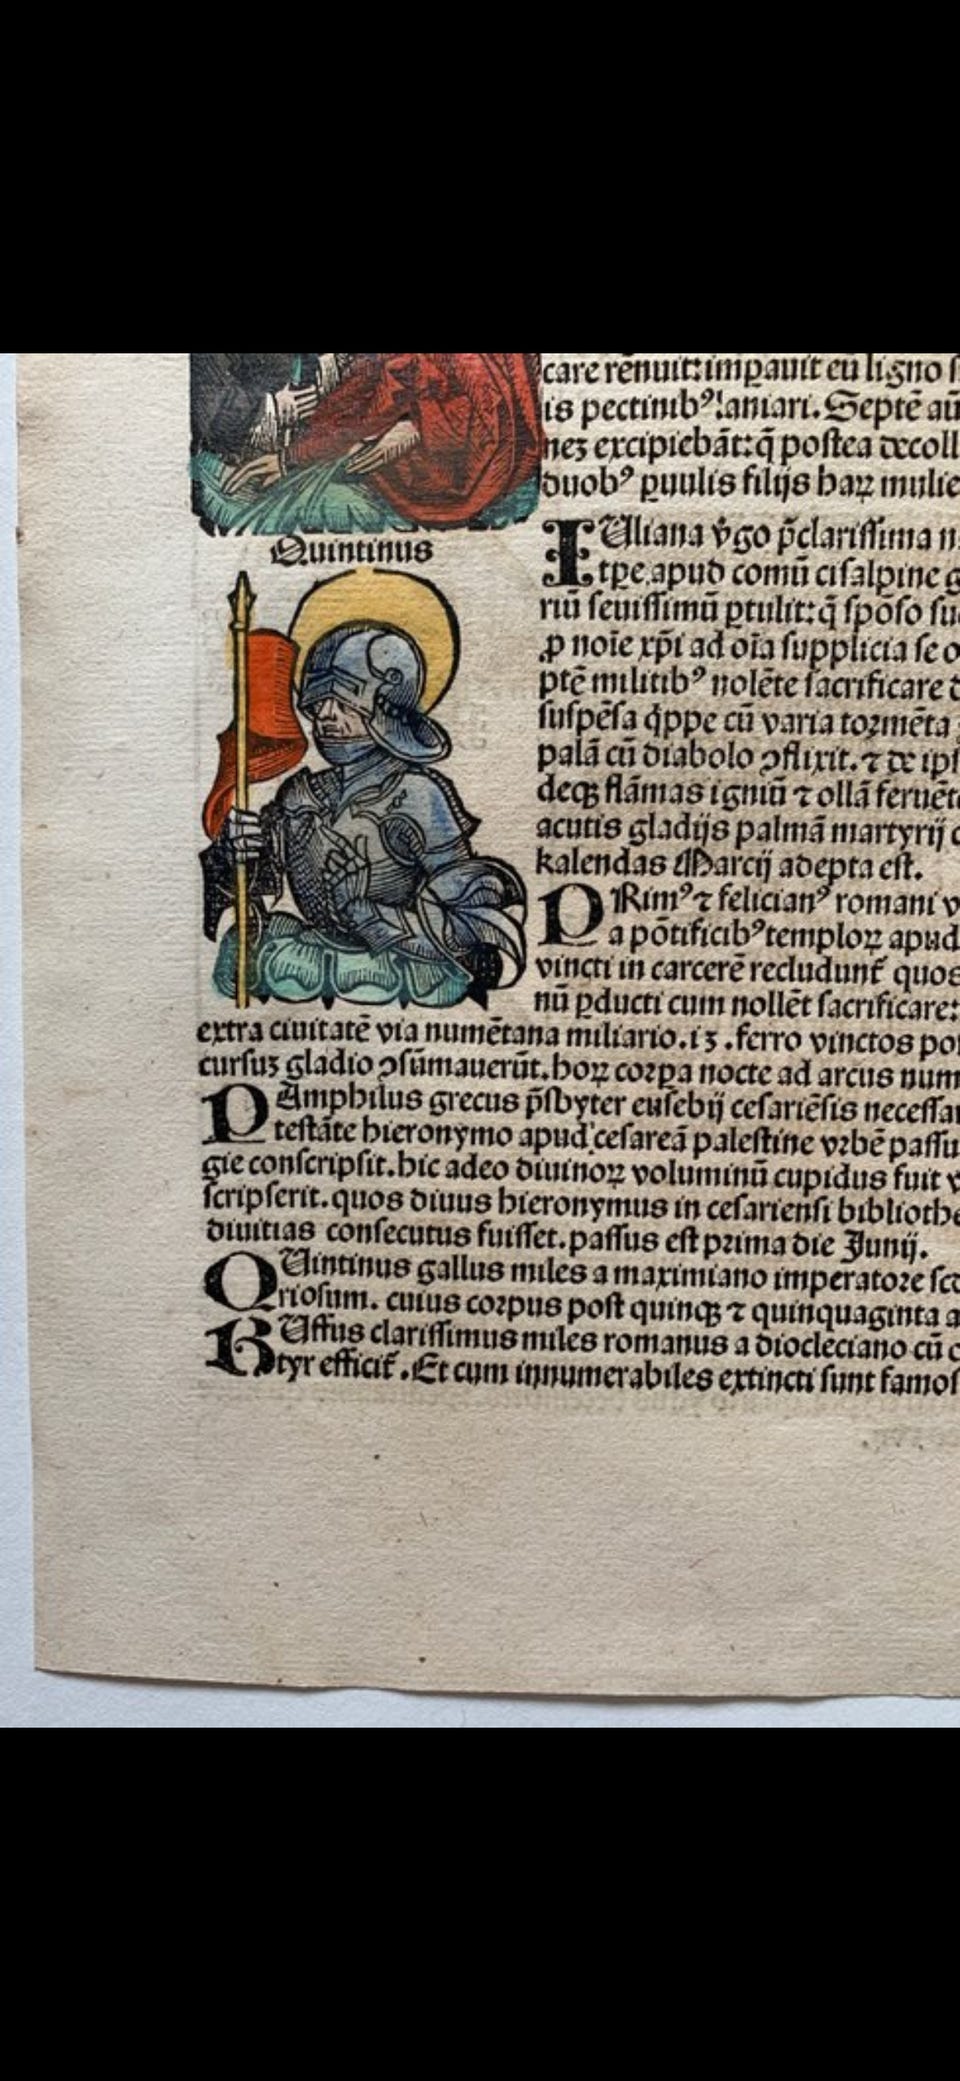 care renuit: imꝑauit eũ ligno s
is pectinibꝰ laniari. Septẽ aũ
nez excipiebãt: q̃ postea decoll
duobꝰ ꝑuulis filijs haꝝ mulie
Quintinus
IUliana v̾go p̃clarissima n
tꝑe apud comũ cisalpine g
riũ seuissimũ ꝑtulit: q̃ sposo su
ꝓ noĩe xp̃i ad oĩa supplicia se o
ptẽ militibꝰ nolẽte sacrificare d
suspẽsa q̇ppe cũ varia tormẽta
palã cũ diabolo ꝯflixit. ⁊ de ips
deqꝫ flãmas igniũ ⁊ ollã feruẽt
acutis gladijs palmã martyrij c
kalendas Marcij adepta est.
PRimꝰ ⁊ felicianꝰ romani v
a põtificibꝰ temploꝝ apud
vincti in carcerẽ recludunt̃ quos
nũ ꝑducti cum nollẽt sacrificare:
extra ciuitatẽ via numẽtana miliario. i3. ferro vinctos po
cursuz gladio ꝯsũmauerũt. hoꝝ corpa nocte ad arcus num
PAmphilus grecus p̃sbyter eusebij cesariẽsis necessa
testãte hieronymo apud cesareã palestine vrbẽ passu
gie conscripsit. hic adeo diuinoꝝ voluminũ cupidus fuit v
scripserit. quos diuus hieronymus in cesariensi bibliothe
diuitias consecutus fuisset. passus est prima die Junij.
QUintinus gallus miles a maximiano imperatore scd
riosum. cuius corpus post quinqꝫ ⁊ quinquaginta a
RUffus clarissimus miles romanus a diocleciano cũ o
tyr efficit̃. Et cum innumerabiles extincti sunt famos